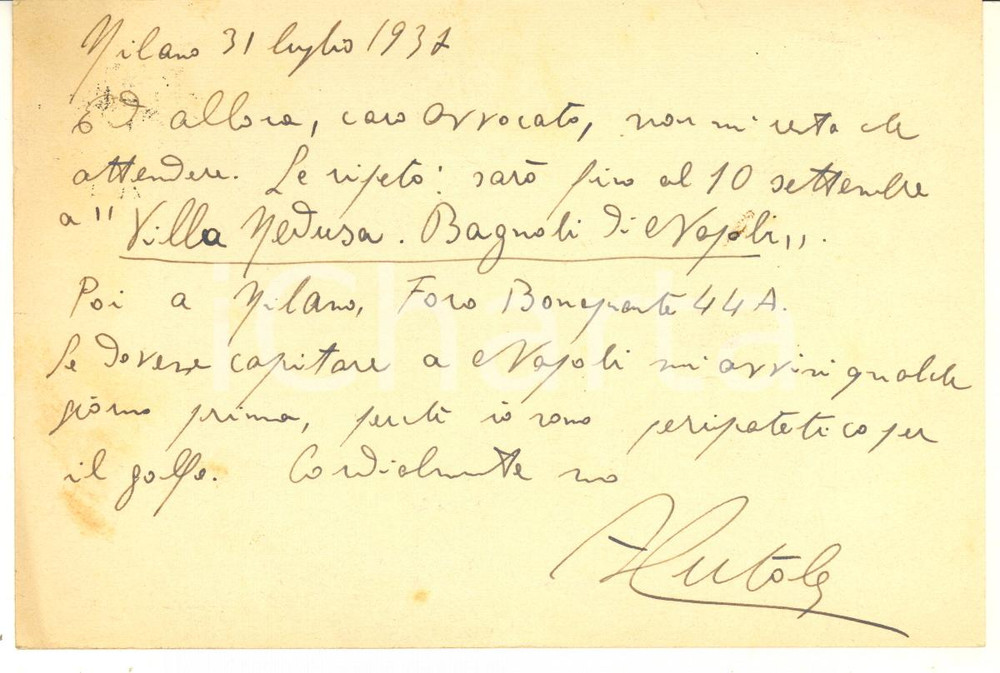 Milano 31 luglio 1937
Ed allora, caro avvocato, non mi resta che
attendere. Le ripeto: sarò fino al 10 settembre
a "Villa Medusa. Bagnoli di Napoli„.
Poi a Milano, Foro Bonaparte 44A.
Se dovesse capitare a Napoli mi avvisi qualche
giorno prima, perché io sono peripatetico per
il golfo. Cordialmente suo
iCharta